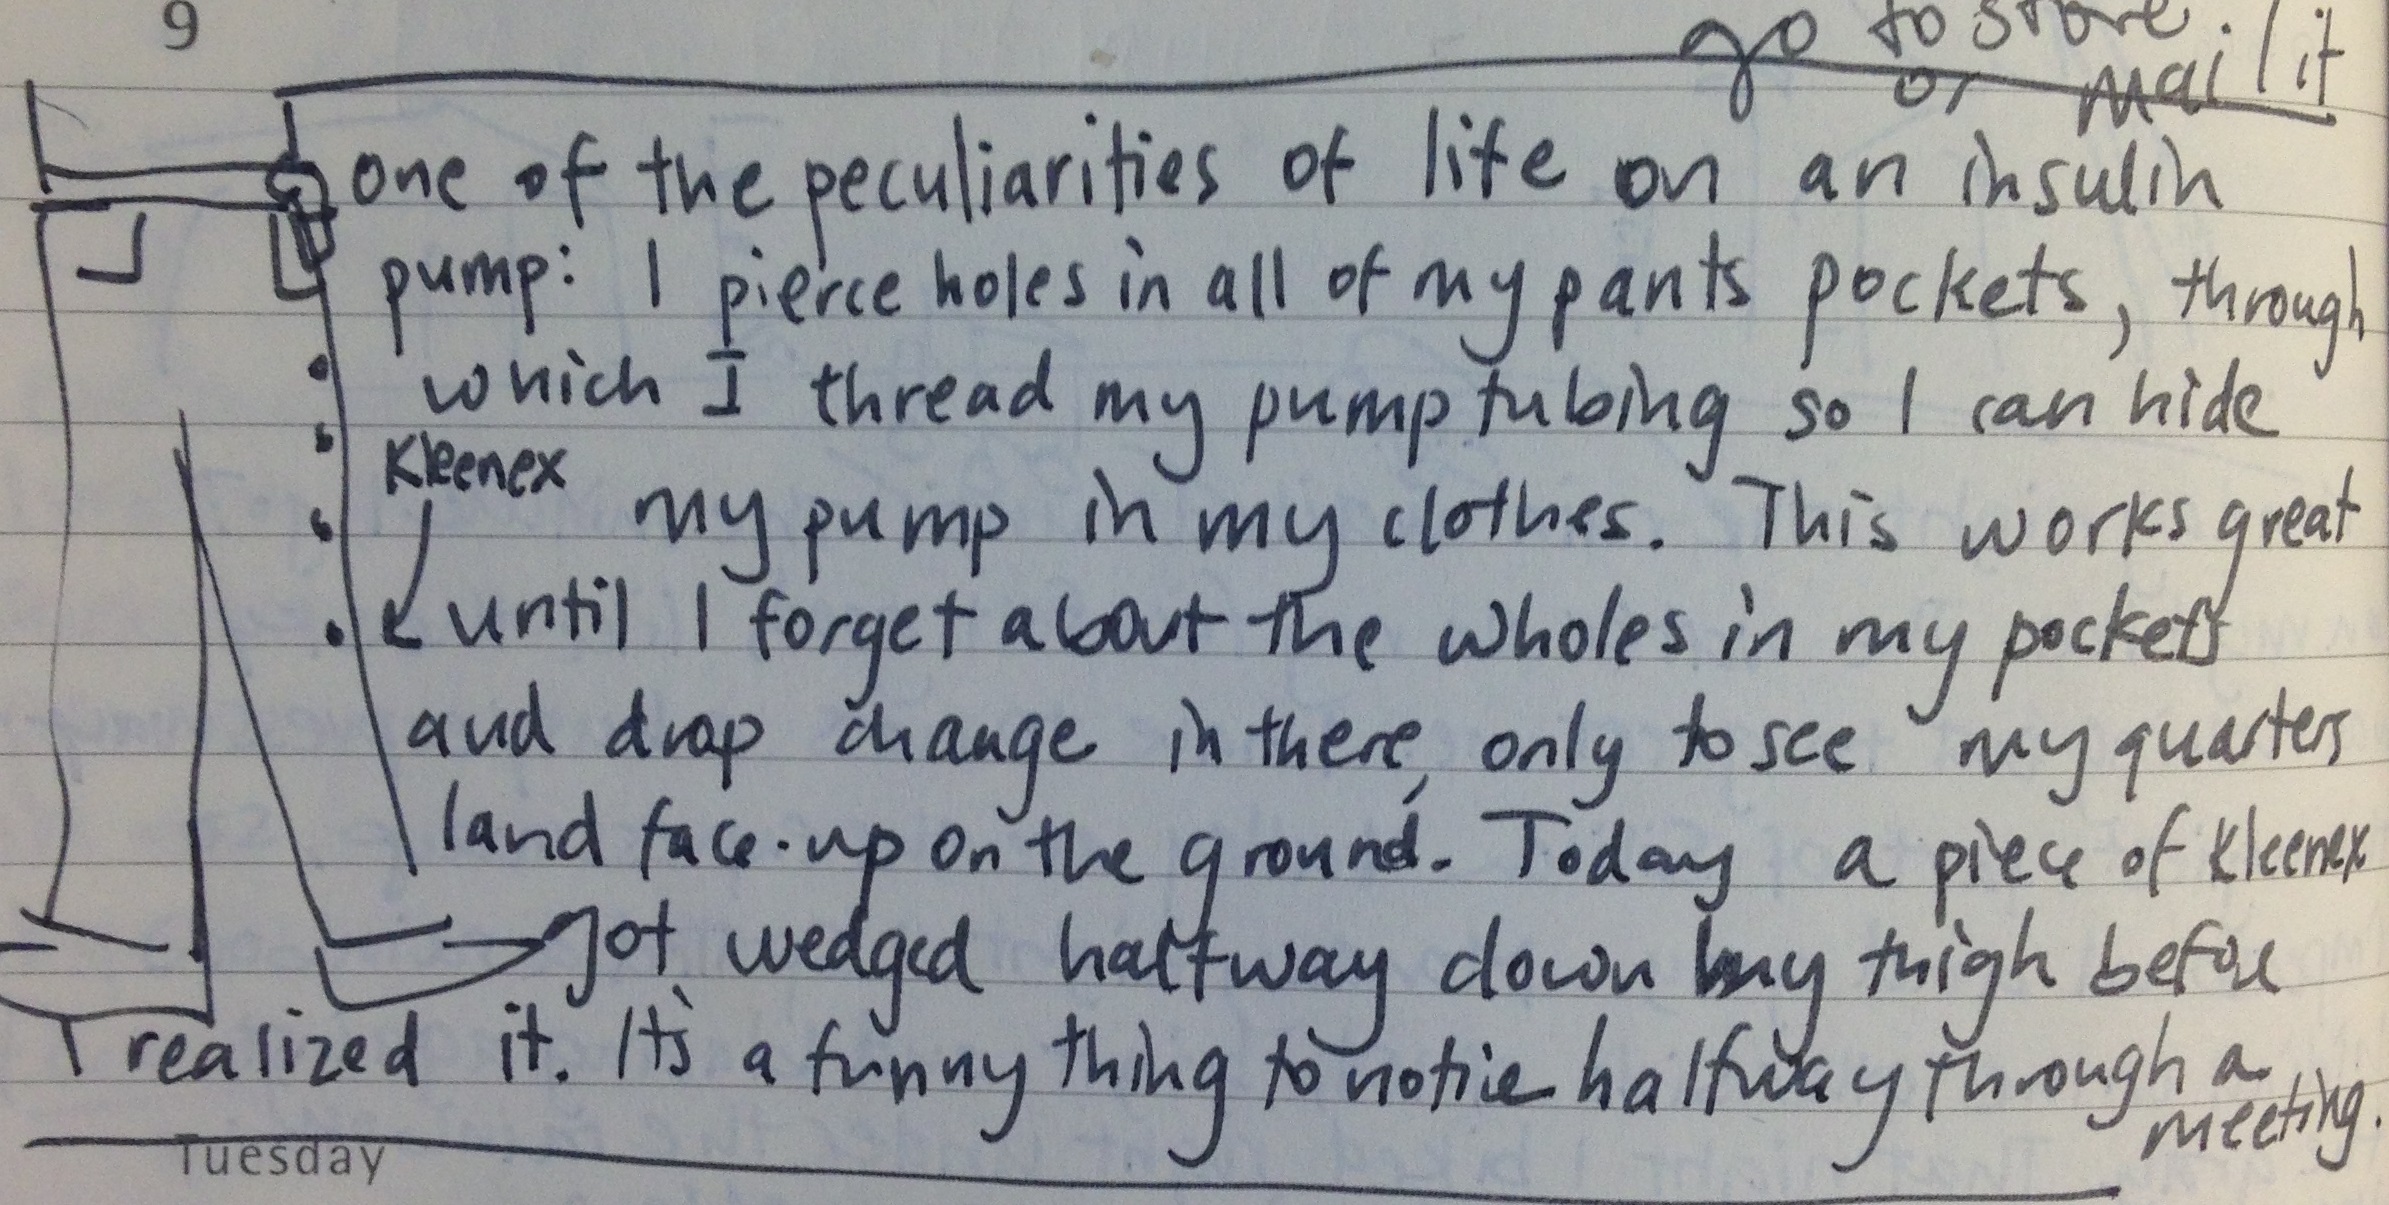 9
go to store.
or mail it
one of the peculiarities of life on an insulin
pump: I pierce holes in all of my pants pockets, through
which I thread my pump tubing so I can hide
Kleenex
my pump in my clothes. This works great
until I forget about the wholes in my pockets
and drop change in there, only to see my quarters
land face-up on the ground. Today a piece of Kleenex
got wedged halfway down my thigh before
I realized it. It's a funny thing to notice halfway through a
meeting.
Tuesday